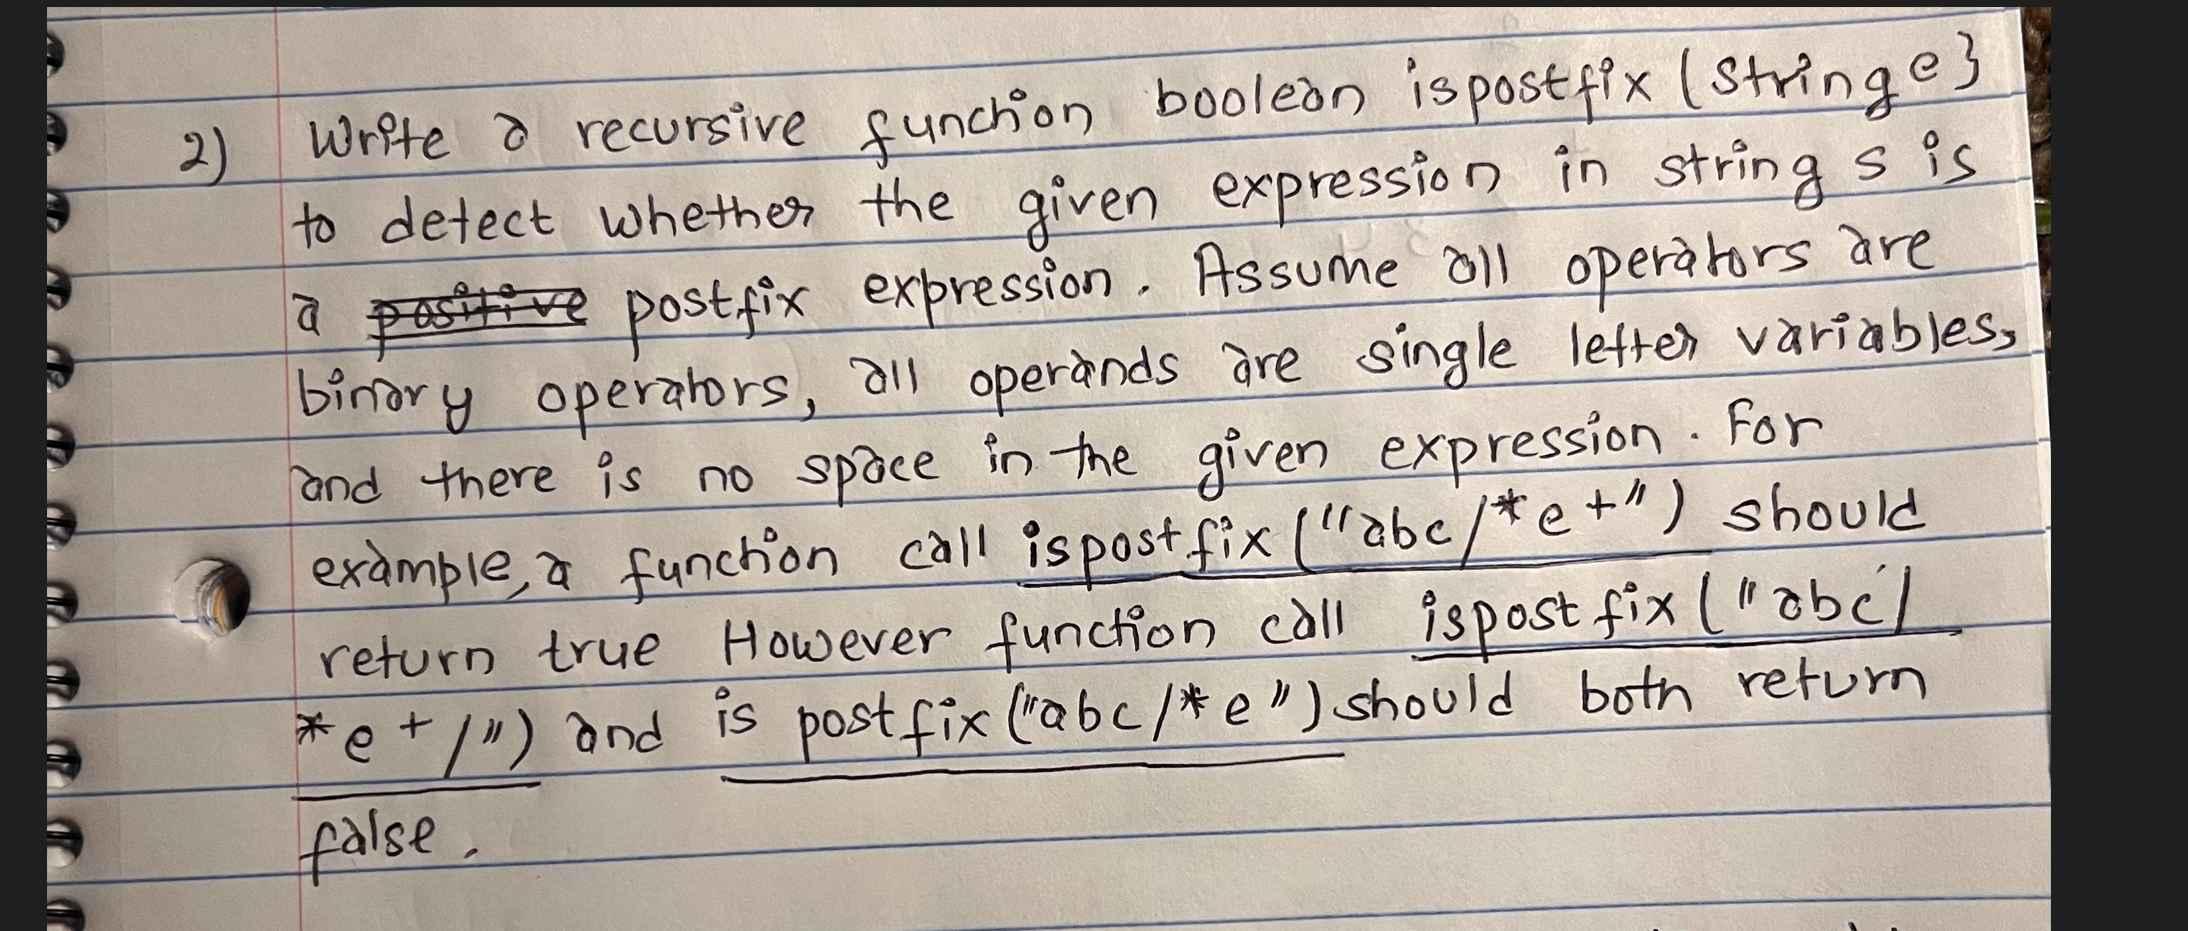 2) Write a recursive function boolean ispostfix (String e}
to detect whether the given expression in string s is
a positive postfix expression. Assume all operators are
binary operators, all operands are single letter variables,
and there is no space in the given expression. For
example, a function call ispostfix ("abc/*e+") should
return true However function call ispostfix ("abc/
*e+/") and is postfix ("abc/*e") should both return
false.